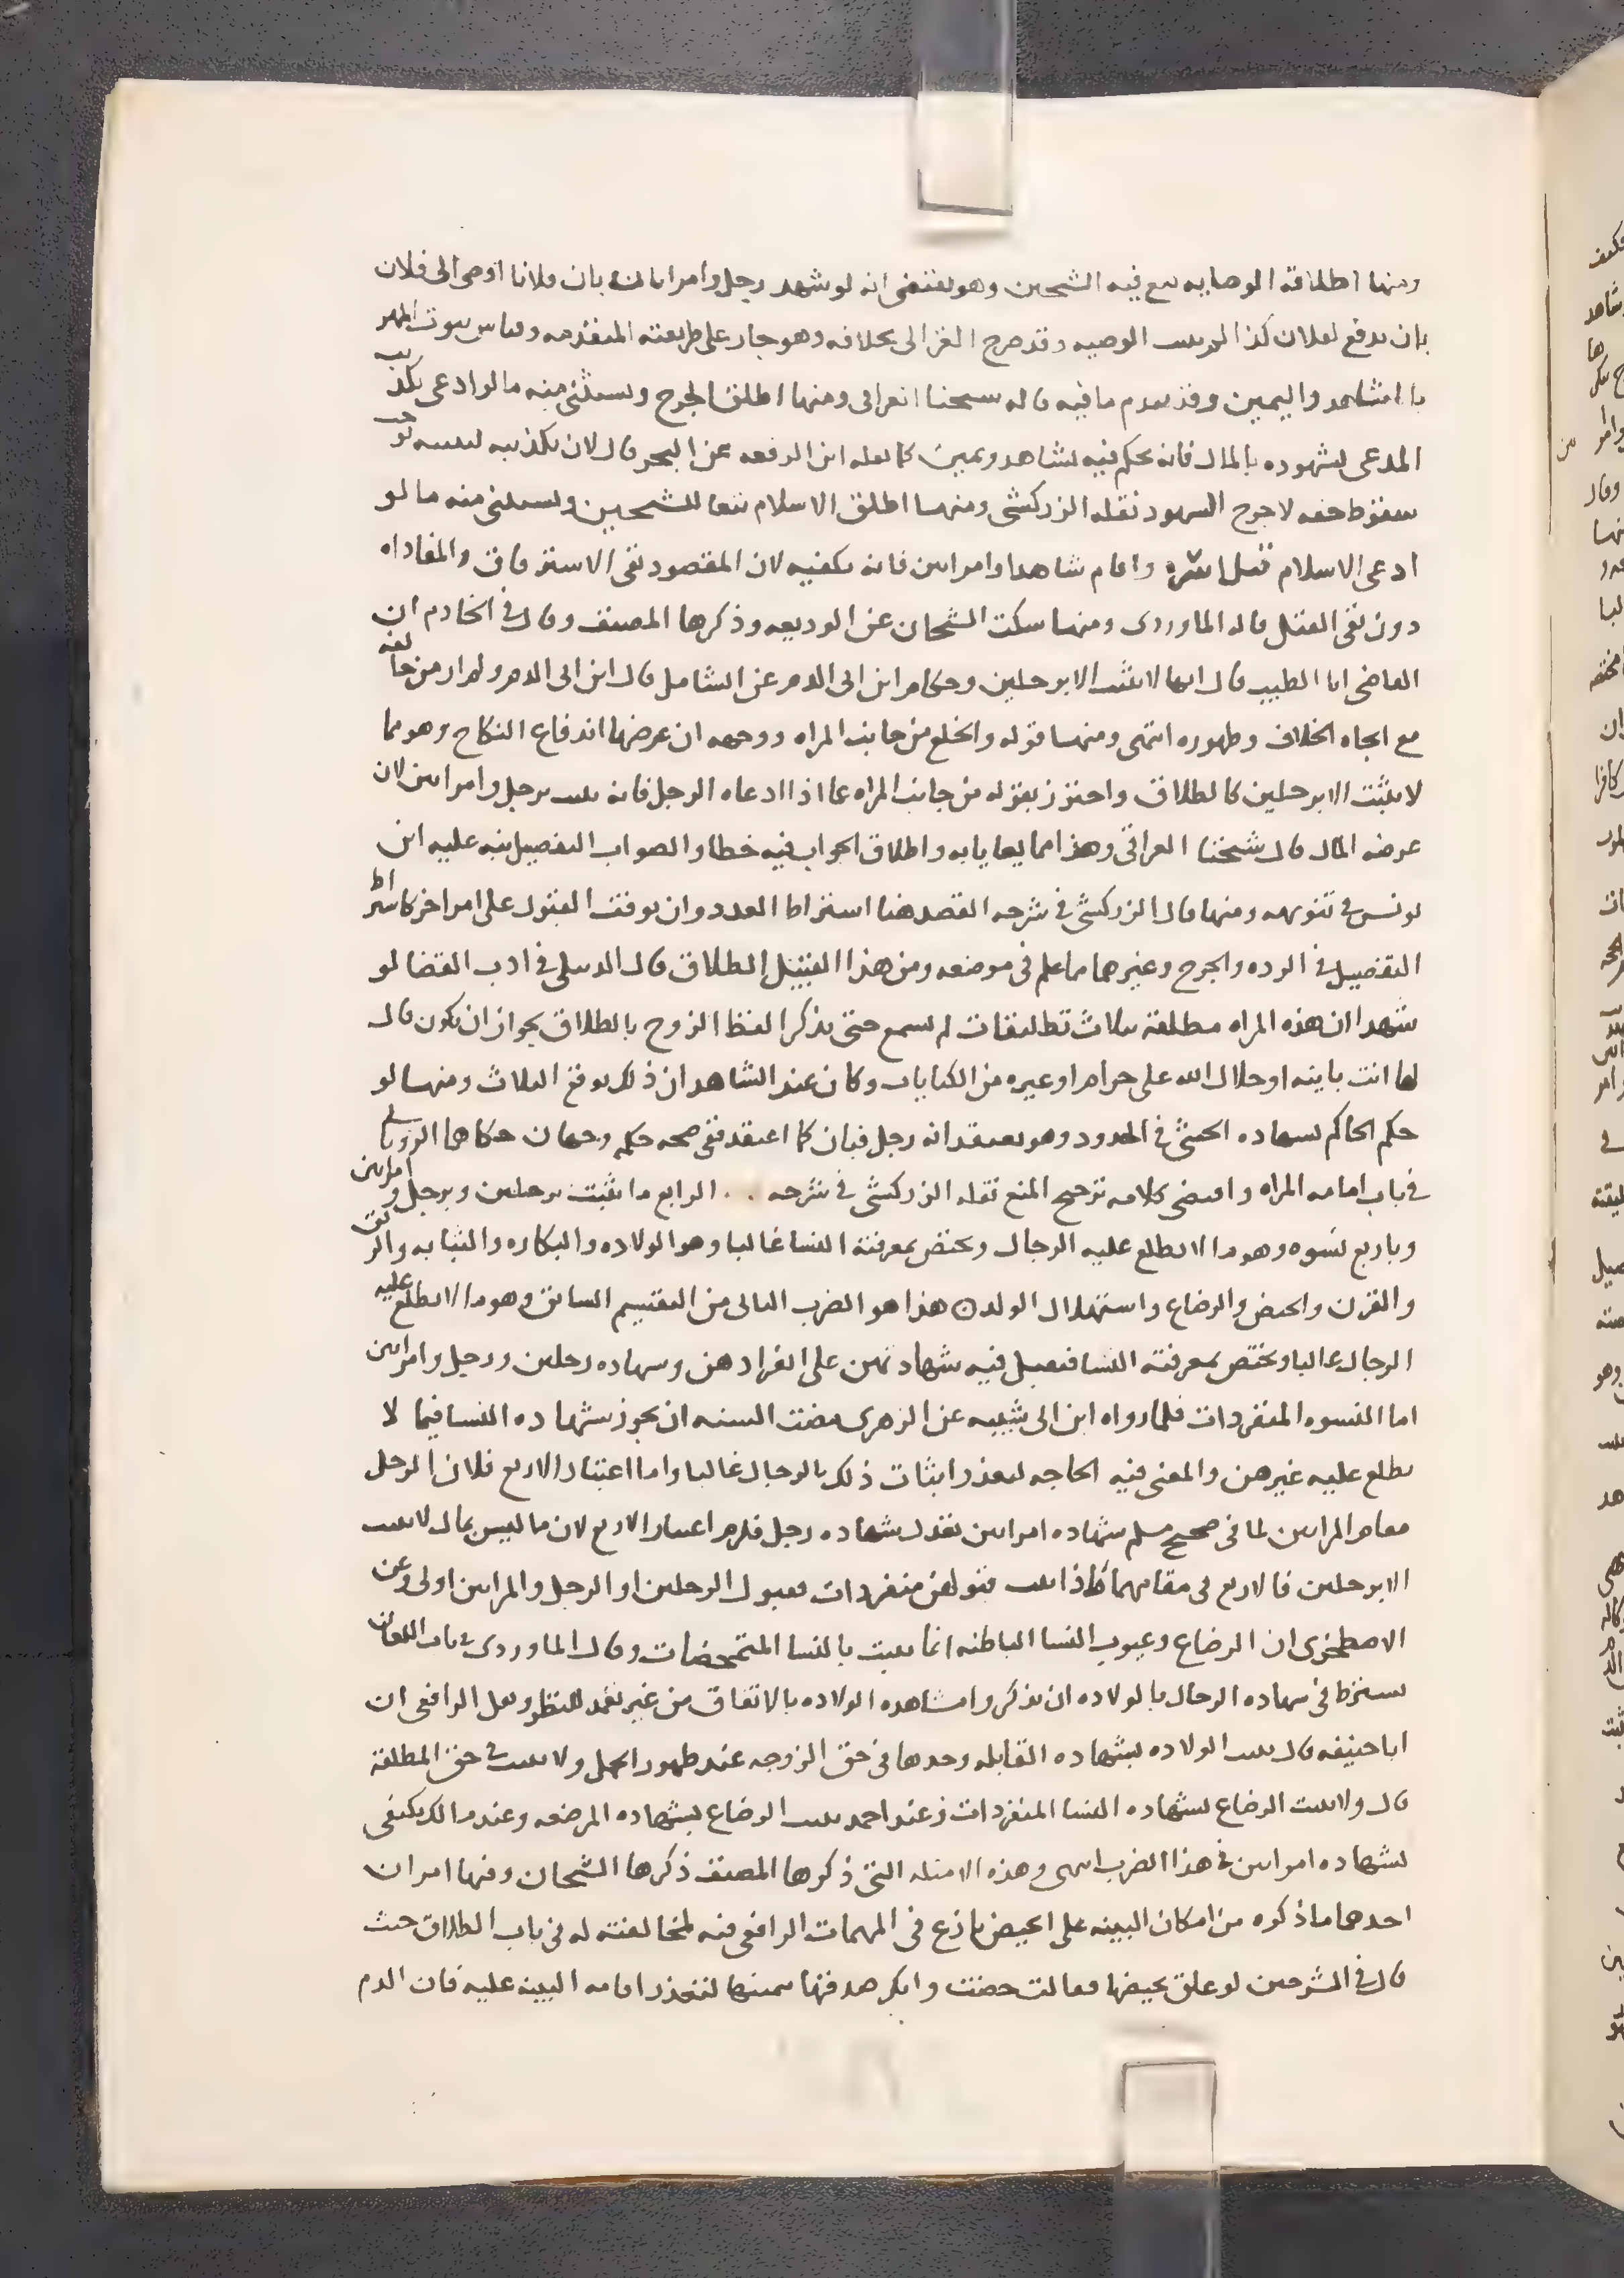 ومنها اطلاقه الوصايه تبع فيه الشيخين وهو يقتضي انه لو شهد رجل وامراتان بان فلانا اوصى الى فلان
بان يدفع لفلان كذا لم يثبت الوصيه وقد صرح الغزالي بخلافه وهو جار على طريقته المتقدمه وقياس ثبوت المهر
بالشاهد واليمين وقد تقدم ما فيه قاله شيخنا العراقي ومنها اطلق الجرح ويستثنى منه ما لو ادعى تكذيب
المدعى بشهوده بالمال فانه يحكم فيه بشاهد ويمين كما نقله ابن الرفعه عن البحر قال لان تكذيبه لنفسه يوجب
سقوط حقه لا جرح الشهود نقله الزركشي ومنها اطلق الاسلام تبعا للشيخين ويستثنى منه ما لو
ادعى الاسلام قبل اسره واقام شاهدا وامراتين فانه يكفيه لان المقصود نفي الاسترقاق والمفاداه
دون نفي القتل قاله الماوردي ومنها سكت الشيخان عن الوديعه وذكرها المصنف وقال في الخادم ان
القاضي ابا الطيب قال انها لا تثبت الا برجلين وحكاه ابن ابي الدم عن الشامل قال ابن ابي الدم ولم ار من خالفه
مع اتجاه الخلاف وظهوره انتهى ومنها قوله والخلع من جانب المراه ووجهه ان غرضها اندفاع النكاح وهو مما
لا يثبت الا برجلين كالطلاق واحترز بقوله من جانب المراه عما اذا ادعاه الرجل فانه يثبت برجل وامراتين لان
غرضه المال قال شيخنا العراقي وهذا مما يعايا به واطلاق الجواب فيه خطا والصواب التفصيل نبه عليه ابن
يونس في تنويهه ومنها قال الزركشي في شرحه القصد هنا اشتراط العدد وان توقف القبول على امر اخر كاشتراط
التفصيل في الرده والجرح وغيرهما مما علم في موضعه ومن هذا القبيل الطلاق قال الدبيلي في ادب القضا لو
شهدا ان هذه المراه مطلقه ثلاث تطليقات لم تسمع حتى يذكرا لفظ الزوج بالطلاق بجواز ان يكون قال
لها انت باينه او حلال الله علي حرام او غيره من الكنايات وكان عند الشاهد ان ذلك يوقع الثلاث ومنها لو
حكم الحاكم بشهاده الخنثى في الحدود وهو يعتقد انه رجل فبان كما اعتقد ففي صحه حكمه وجهان حكاهما الروياني
في باب امامه المراه واقتضى كلامه ترجيح المنع نقله الزركشي في شرحه . . الرابع ما يثبت برجلين وبرجل وامراتين
وباربع نسوه وهو ما لا يطلع عليه الرجال ويختص بمعرفته النسا غالبا وهو الولاده والبكاره والثيابه والرتق
والقرن والحيض والرضاع واستهلال الولد ن هذا هو الضرب الثاني من التقسيم السابق وهو ما لا يطلع عليه
الرجال غالبا ويختص بمعرفته النسا فيقبل فيه شهادتهن على انفرادهن وشهاده رجلين ورجل وامراتين
اما النسوه المنفردات فلما رواه ابن ابي شيبه عن الزهري مضت السنه ان يجوز شهاده النسا فيما لا
يطلع عليه غيرهن والمعنى فيه الحاجه لتعذر اثبات ذلك بالرجال غالبا واما اعتبار الاربع فلان الرجل
مقام المراتين لما في صحيح مسلم شهاده امراتين تعدل شهاده رجل فلزم اعتبار الاربع لان ما ليس بمال لا يثبت
الا برجلين فالاربع في مقامهما فاذا ثبت قبولهن منفردات فقبول الرجلين او الرجل والمراتين اولى وعن
الاصطخري ان الرضاع وعيوب النسا الباطنه انما يثبت بالنسا المتمحضات وقال الماوردي في باب اللعان
يشترط في شهاده الرجال بالولاده ان يذكروا مشاهده الولاده بالاتفاق من غير تعمد للنظر ونقل الرافعي ان
ابا حنيفه قال يثبت الولاده بشهاده القابله وحدها في حق الزوجه عند ظهور الحمل ولا يثبت في حق المطلقة
قال ولا يثبت الرضاع بشهاده النسا المنفردات وعند احمد يثبت الرضاع بشهاده المرضعه وعند مالك يكتفي
بشهاده امراتين في هذا الضرب انتهى وهذه الامثله التي ذكرها المصنف ذكرها الشيخان وفيها امران
احدهما ما ذكره من امكان البينه على الحيض نازع في المهمات الرافعي فيه لمخالفته له في باب الطلاق حيث
قال في الشرحين لو علق بحيضها فقالت حضت وانكر صدقها بيمينها لتعذر اقامه البينه عليه فان الدم